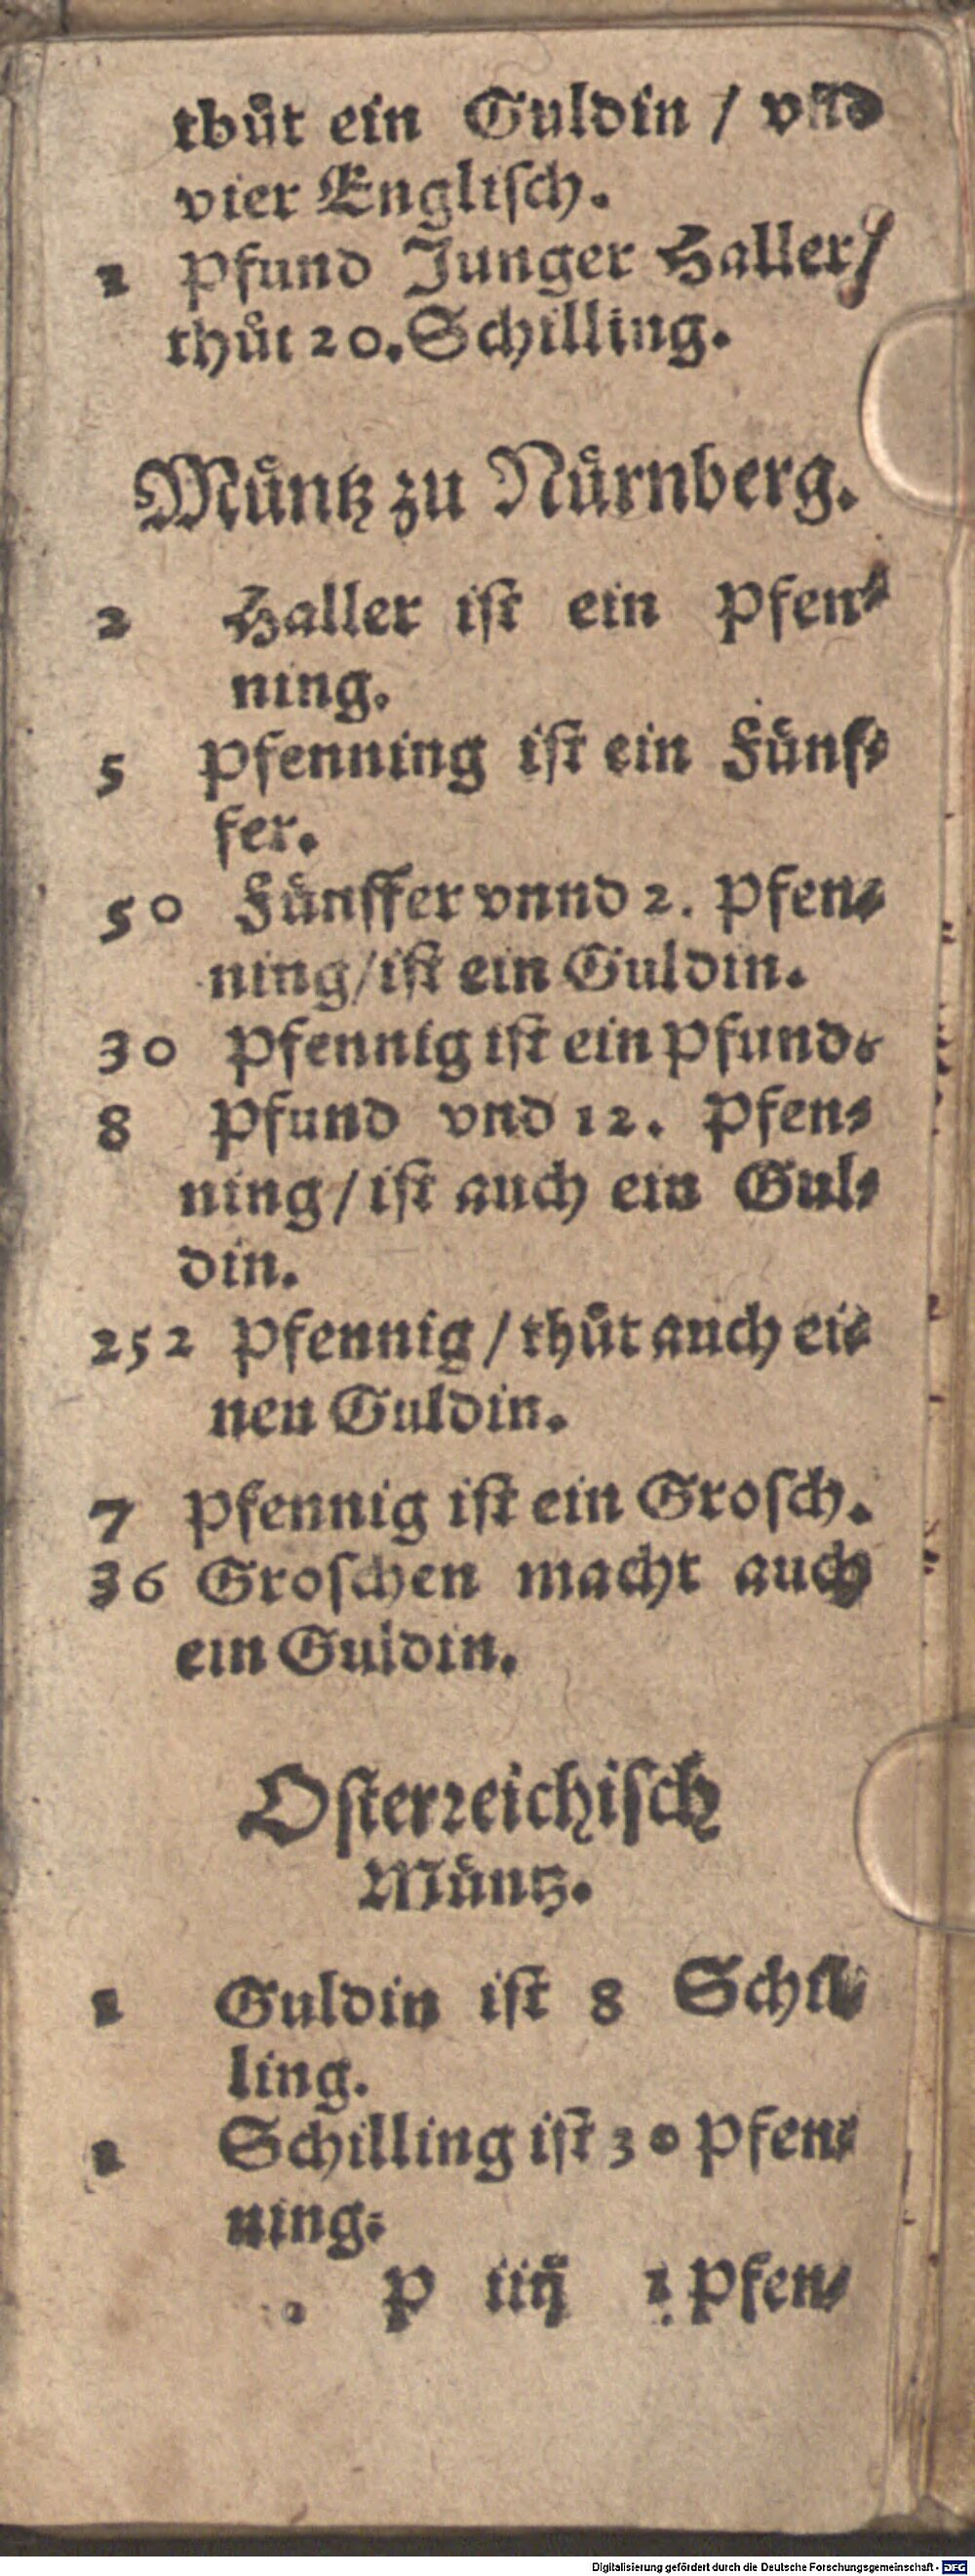 thuͤt ein Guldin / vnd
vier Engliſch.
1 Pfund Junger Haller /
thuͤt 20. Schilling.
Muͤntz zu Nuͤrnberg.
2 Haller iſt ein Pfen⸗
ning.
5 Pfenning iſt ein Fuͤnf⸗
fer.
50 Fuͤnffer vnnd 2. Pfen⸗
ning / iſt ein Guldin.
30 Pfennig iſt ein Pfund.
8 Pfund vnd 12. Pfen⸗
ning / iſt auch ein Gul⸗
din.
252 Pfennig / thuͤt auch ei⸗
nen Guldin.
7 Pfennig iſt ein Groſch.
36 Groſchen macht auch
ein Guldin.
Oſterꝛeichiſch
Muͤntz.
1 Guldin iſt 8 Schil⸗
ling.
1 Schilling iſt 30 Pfen⸗
ning.
P iiij 1 Pfen⸗
Digitalisierung gefördert durch die Deutsche Forschungsgemeinschaft - DFG